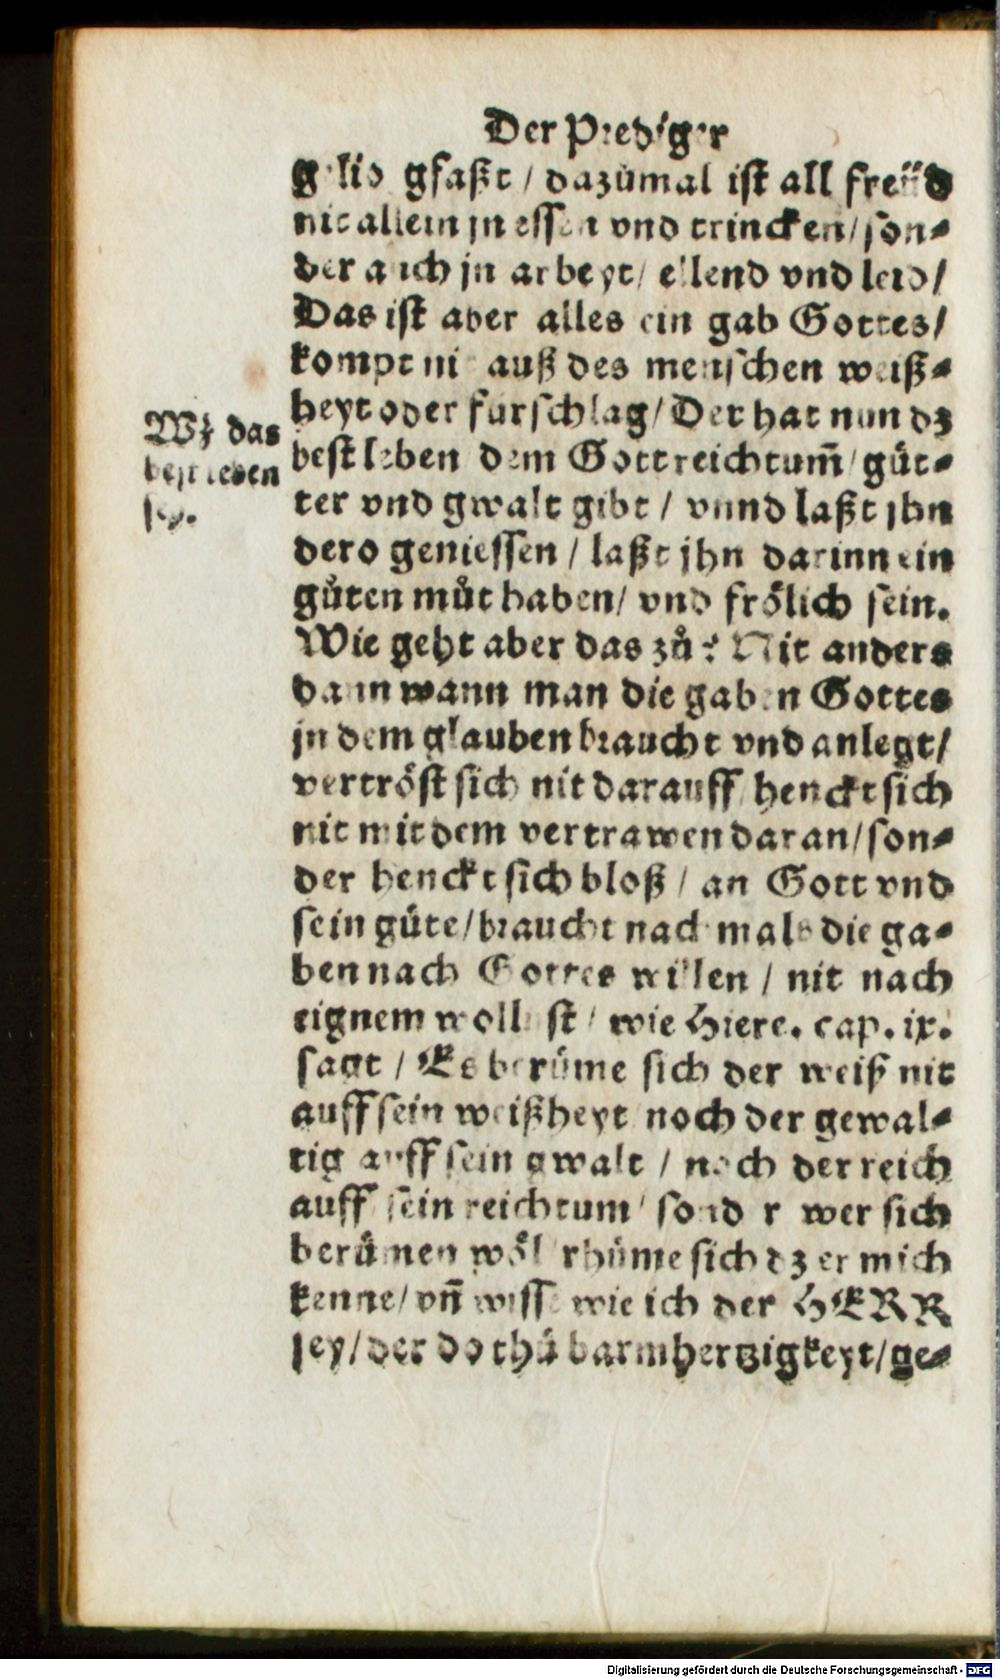 Der Prediger
gelio gfaßt / dazůmal ist all freüd
nit allein jn essen vnd trincken / son-
der auch jn arbeyt / ellend vnd leid /
Das ist aber alles ein gab Gottes /
kompt nit auß des menschen weiß-
heyt oder fürschlag / Der hat nun dz
best leben dem Gott reichtum̃ / güt-
ter vnd gwalt gibt / vnnd laßt jhn
dero geniessen / laßt jhn darinn ein
gůten můt haben / vnd frölich sein.
Wie geht aber das zů? Nit anders
dann wann man die gaben Gottes
jn dem glauben braucht vnd anlegt /
vertröst sich nit darauff / henckt sich
nit mit dem vertrawen daran / son-
der henckt sich bloß / an Gott vnd
sein güte / braucht nachmals die ga-
ben nach Gottes willen / nit nach
eignem wollust / wie Hiere. cap. ix.
sagt / Es berüme sich der weiß nit
auff sein weißheyt noch der gewal-
tig auff sein gwalt / noch der reich
auff sein reichtum / sonder wer sich
berümen wöl / rhüme sich dz er mich
kenne / vñ wisse wie ich der HERR
sey / der do thů barmhertzigkeyt / ge-
Wz das
best leben
sey.
Digitalisierung gefördert durch die Deutsche Forschungsgemeinschaft - DFG